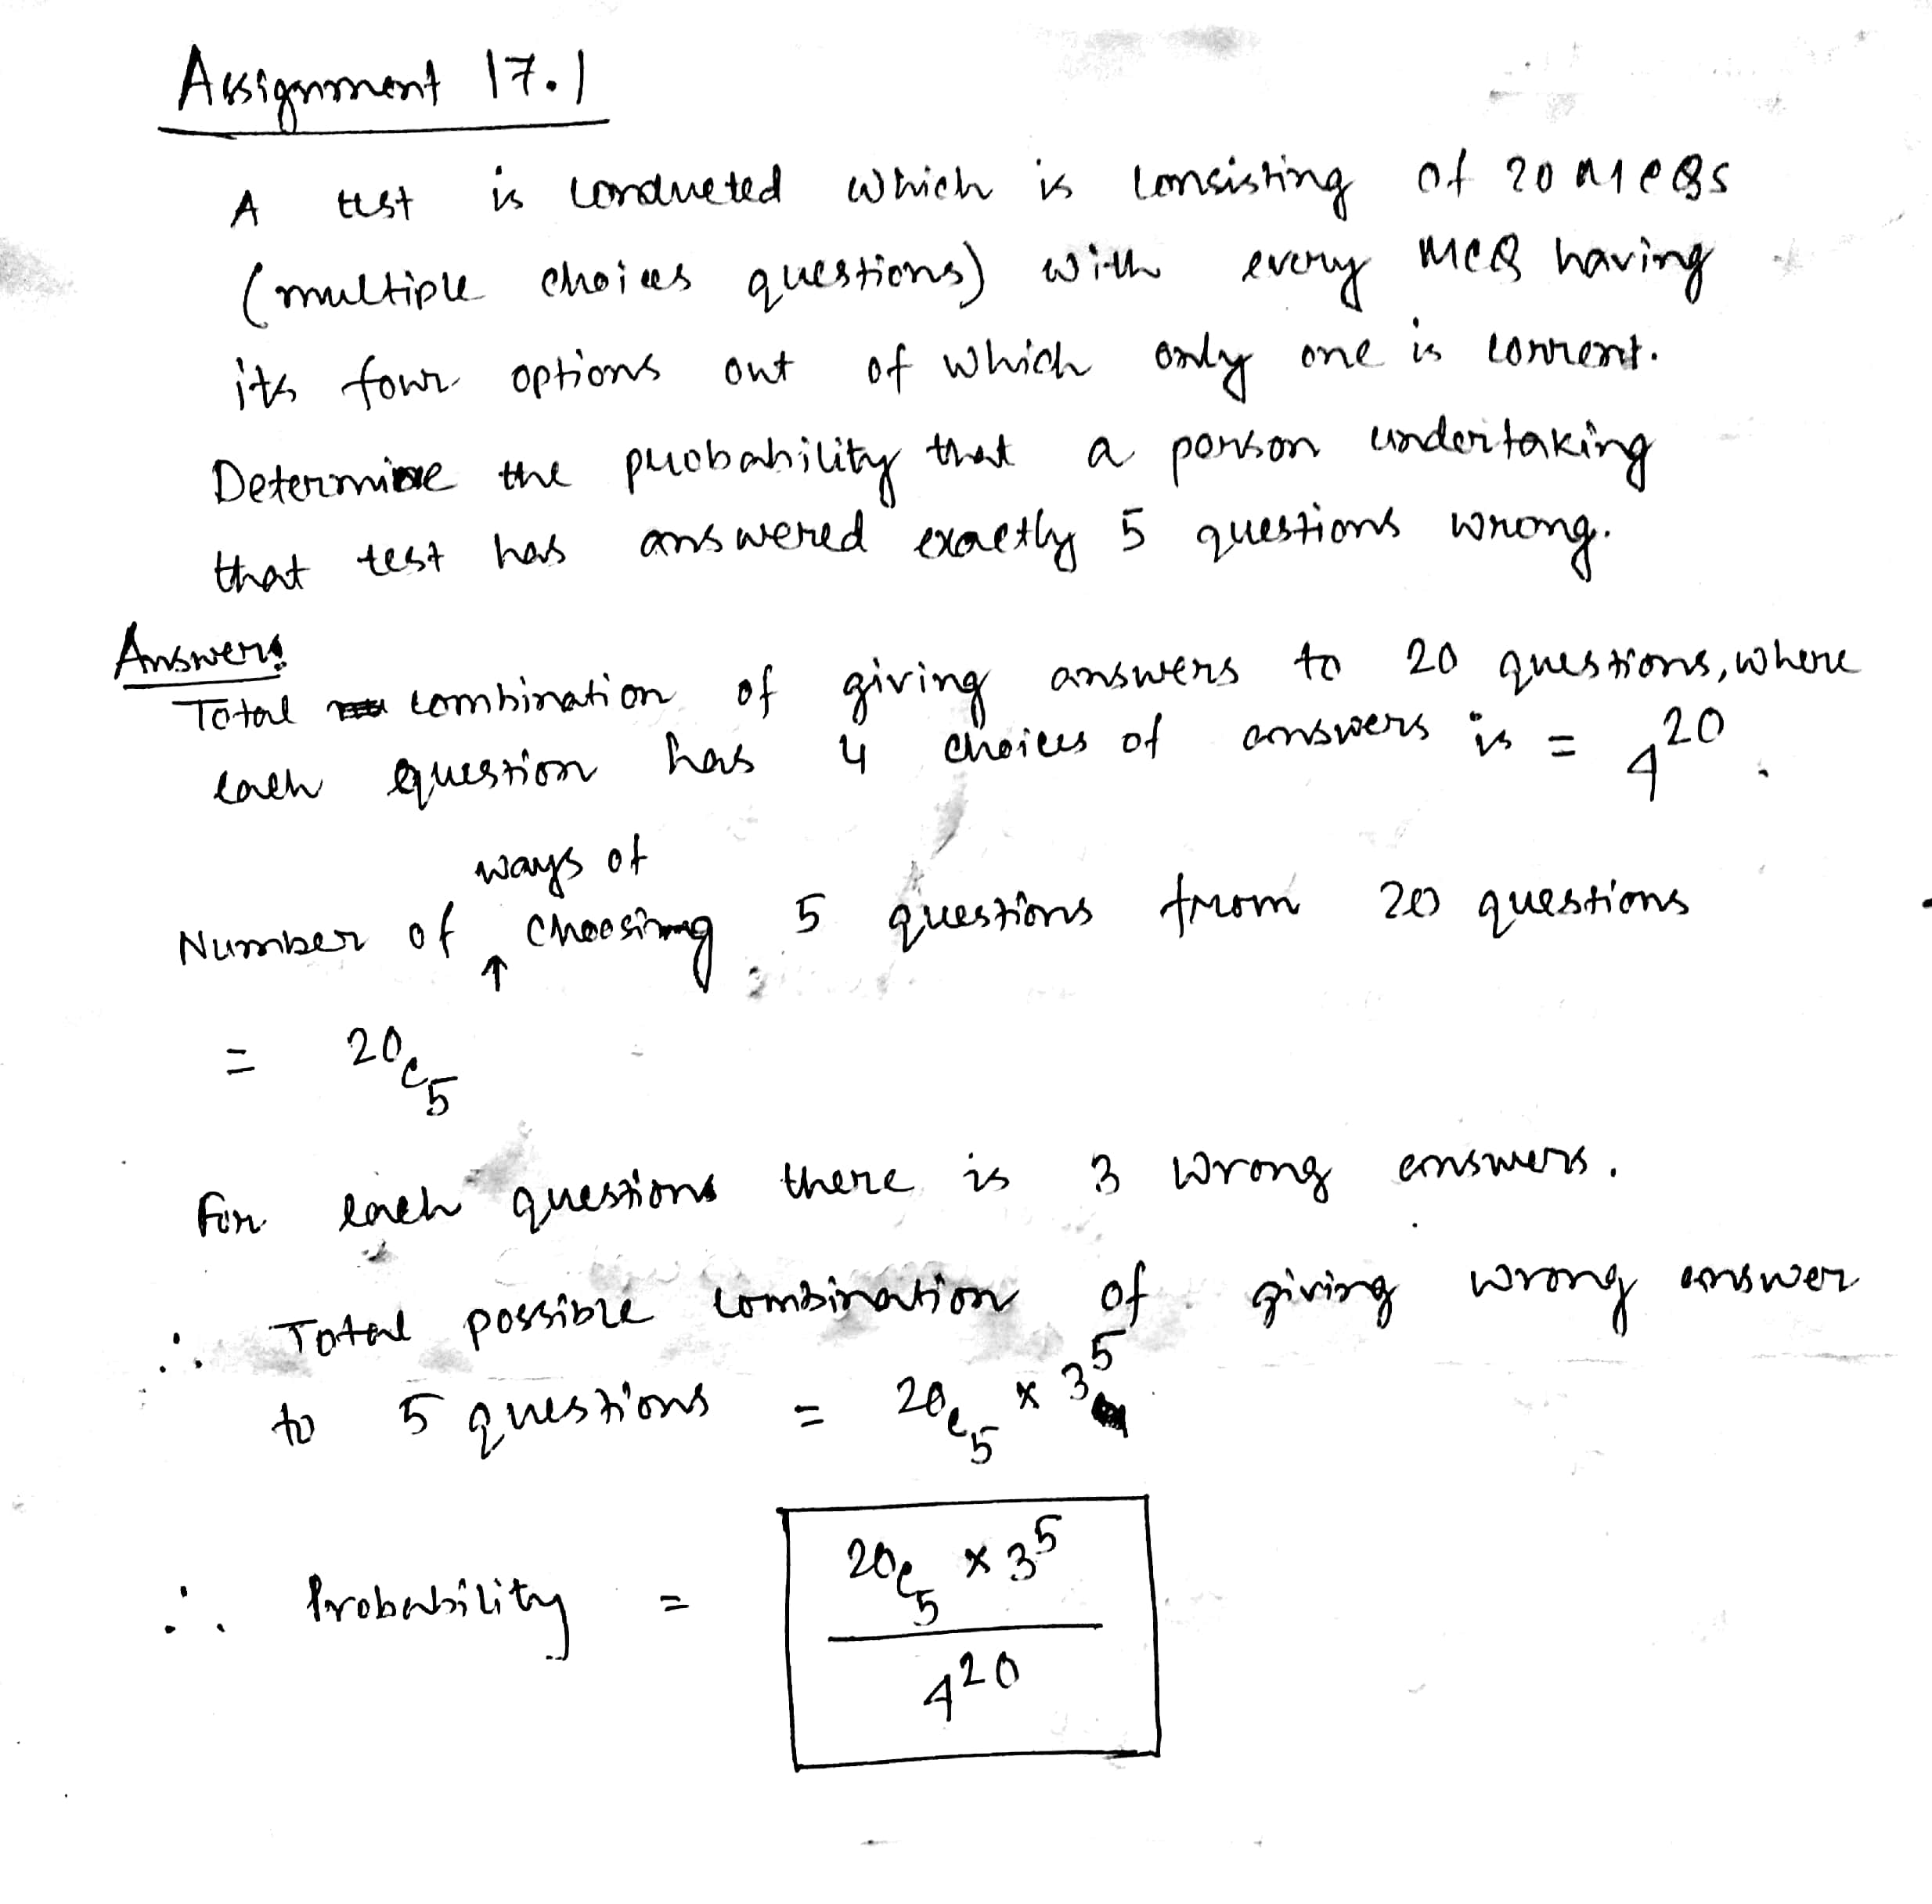 Assignment 17.1
A test is conducted which is consisting of 20 MCQs
(multiple choices questions) with every MCQ having
its four options out of which only one is corrent.
Determine the probability that a person undertaking
that test has answered exactly 5 questions wrong.
Answer:
Total combination of giving answers to 20 questions, where
each question has 4 choices of answers is = 4^20.
ways of
Number of ↑ choosing 5 questions from 20 questions
= 20c5
For each questions there is 3 wrong answers.
∴ Total possible combination of giving wrong answer
to 5 questions = 20c5 × 3^5
∴ Probability =
20c5 × 3^5
4^20